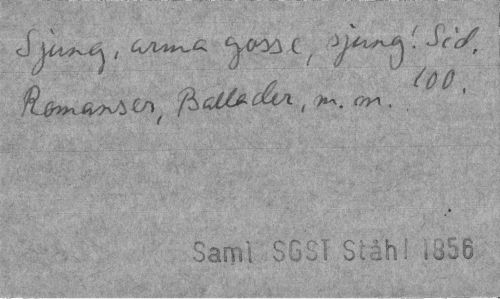 Sjung, arma gosse, sjung! Sid.
Romanser, Ballader, m. m. 100.
Saml SGST Ståhl 1856